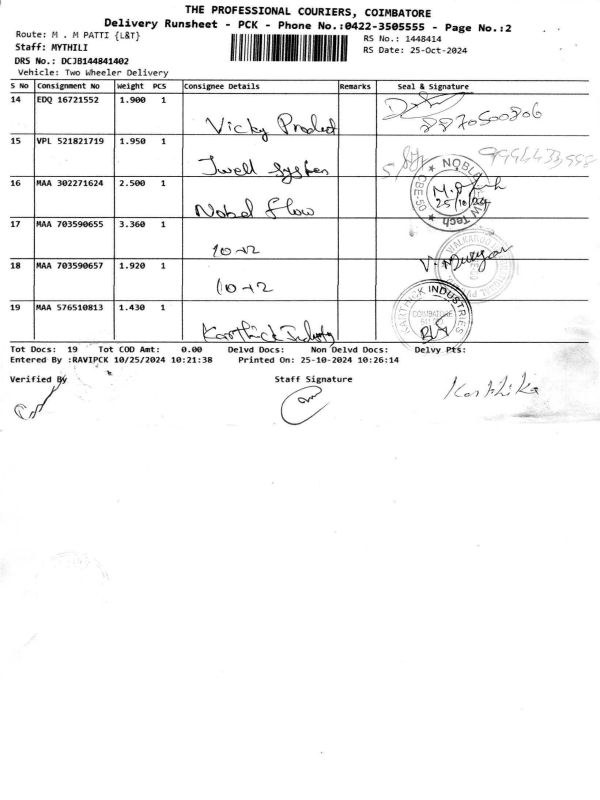 THE PROFESSIONAL COURIERS, COIMBATORE
Delivery Runsheet - PCK - Phone No.:0422-3505555 - Page No.:2
Route: M . M PATTI {L&T}
RS No.: 1448414
Staff: MYTHILI
RS Date: 25-Oct-2024
DRS No.: DCJB144841402
Vehicle: Two Wheeler Delivery
S No Consignment No Weight PCS Consignee Details Remarks Seal & Signature
14 EDQ 16721552 1.900 1 Vicky Product 8870500806
15 VPL 521821719 1.950 1 Jwell System 9994433998
16 MAA 302271624 2.500 1 Nobel Flow 25/10/24
17 MAA 703590655 3.360 1 10-12
18 MAA 703590657 1.920 1 10-12 V. Murugan
19 MAA 576510813 1.430 1 Karthick Industry KARTHICK INDUSTRIES COIMBATORE
Tot Docs: 19 Tot COD Amt: 0.00 Delvd Docs: Non Delvd Docs: Delvy Pts:
Entered By :RAVIPCK 10/25/2024 10:21:38 Printed On: 25-10-2024 10:26:14
Verified By Staff Signature Karthika